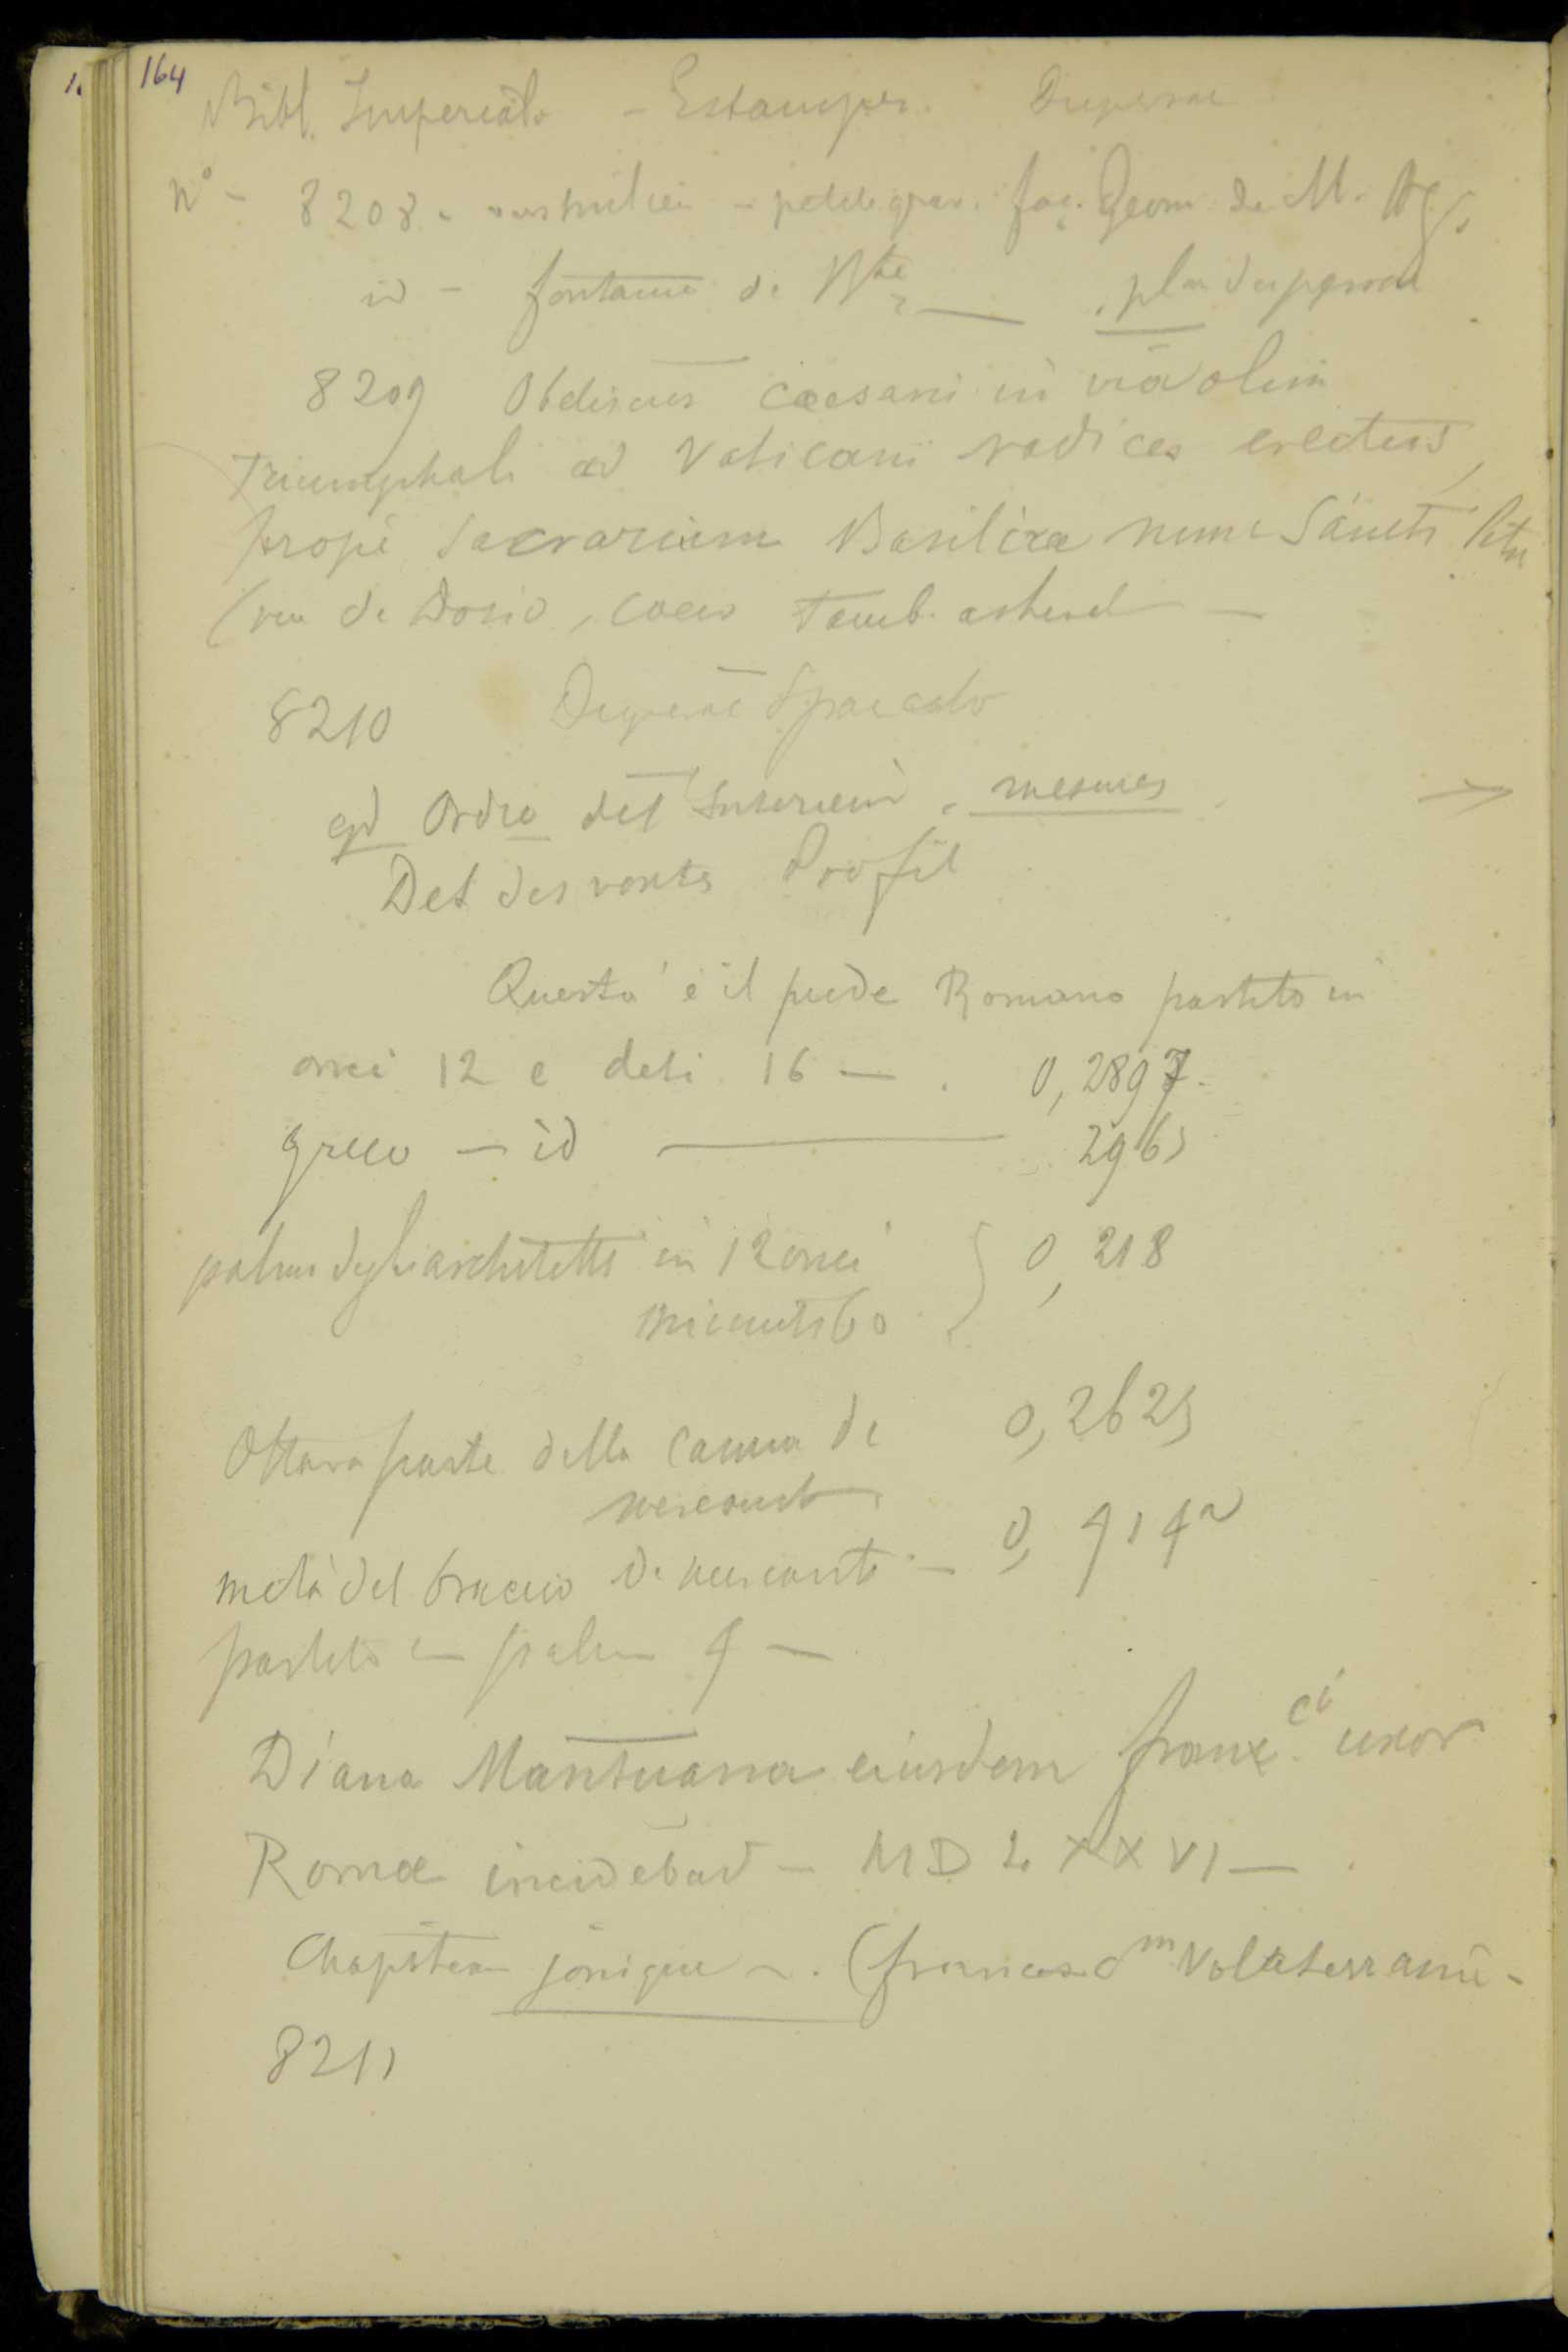 164
Bibl. Imperiale - Estampes. Duperac
n° - 8208 - - petite grav. faç. Geom. de M. Ag.
id - fontaine de plan duperac
8209 Obeliscus Caesaris in via olim
Triumphali ad Vaticani radices erectus,
prope Sacrarium Basilicae nunc Sancti Petri
(vu de Dosio,
8210 Duperac Spaccato
gd Ordre det Interieur, mesures
Det des voutes Profil
Questo è il piede Romano partito in
onci 12 e deti 16 — . 0,2897.
greco — id 2965
palmo degli architetti in 12 onci } 0,218
minuti 60
Ottava parte della canna de 0,2625
mercant
metà del braccio de mercanti — 0,414
partito in palmi 4 —
Diana Mantuana eiusdem franc.ci uxor
Romae incidebat — MDLXXVI — .
Chapiteau jonique . (francesc m Volaterranu -
8211